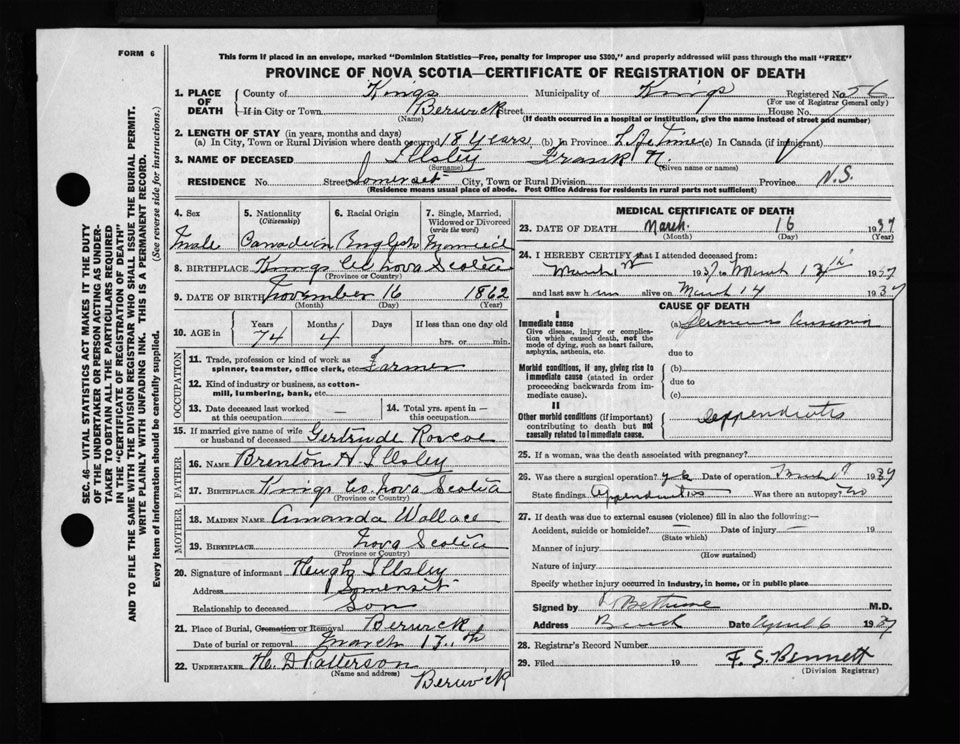 FORM 6
This form if placed in an envelope, marked "Dominion Statistics—Free, penalty for improper use $300," and properly addressed will pass through the mail "FREE"
PROVINCE OF NOVA SCOTIA—CERTIFICATE OF REGISTRATION OF DEATH
1. PLACE OF DEATH County of Kings Municipality of Kings Registered No. 56
(For use of Registrar General only)
If in City or Town Berwick Street House No.
(Name) (If death occurred in a hospital or institution, give the name instead of street and number)
2. LENGTH OF STAY (in years, months and days)
(a) In City, Town or Rural Division where death occurred 18 Years (b) In Province Life Time (c) In Canada (if immigrant)
3. NAME OF DECEASED Illsley Frank
(Surname) (Given name or names)
RESIDENCE No. Street Somerset City, Town or Rural Division Province N.S.
(Residence means usual place of abode. Post Office Address for residents in rural parts not sufficient)
4. Sex 5. Nationality (Citizenship) 6. Racial Origin 7. Single, Married, Widowed or Divorced (write the word)
male Canadian English married
8. BIRTHPLACE Kings Co Nova Scotia
(Province or Country)
9. DATE OF BIRTH November 16 1862
(Month) (Day) (Year)
10. AGE in Years Months Days If less than one day old
74 4 hrs. or min.
OCCUPATION
11. Trade, profession or kind of work as spinner, teamster, office clerk, etc. Farmer
12. Kind of industry or business, as cotton-mill, lumbering, bank, etc.
13. Date deceased last worked at this occupation — 14. Total yrs. spent in this occupation —
15. If married give name of wife or husband of deceased Gertrude Roscoe
FATHER
16. NAME Brenton H. Illsley
17. BIRTHPLACE Kings Co. Nova Scotia
(Province or Country)
MOTHER
18. MAIDEN NAME Amanda Wallace
19. BIRTHPLACE Nova Scotia
(Province or Country)
20. Signature of informant Hugh Illsley
Address Somerset
Relationship to deceased Son
21. Place of Burial, Cremation or Removal Berwick
Date of burial or removal March 17th
22. UNDERTAKER H. D Patterson
(Name and address)
Berwick
MEDICAL CERTIFICATE OF DEATH
23. DATE OF DEATH March 16 1937
(Month) (Day) (Year)
24. I HEREBY CERTIFY that I attended deceased from:
March 1937 to March 1937
and last saw him alive on March 14 1937
CAUSE OF DEATH
I
Immediate cause
Give disease, injury or complication which caused death, not the mode of dying, such as heart failure, asphyxia, asthenia, etc.
(a)
due to
Morbid conditions, if any, giving rise to immediate cause (stated in order proceeding backwards from immediate cause).
(b)
due to
(c)
II
Other morbid conditions (if important) contributing to death but not causally related to immediate cause.
Appendicitis
25. If a woman, was the death associated with pregnancy?
26. Was there a surgical operation? yes Date of operation 1937
State findings Appendicitis Was there an autopsy? no
27. If death was due to external causes (violence) fill in also the following:—
Accident, suicide or homicide? — Date of injury — 19
(State which)
Manner of injury
(How sustained)
Nature of injury
Specify whether injury occurred in industry, in home, or in public place
Signed by Bethune M.D.
Address Date April 6 1937
28. Registrar's Record Number
29. Filed 19 F. S. Bennett
(Division Registrar)
SEC. 46—VITAL STATISTICS ACT MAKES IT THE DUTY
OF THE UNDERTAKER OR PERSON ACTING AS UNDER-
TAKER TO OBTAIN ALL THE PARTICULARS REQUIRED
IN THE "CERTIFICATE OF REGISTRATION OF DEATH"
AND TO FILE THE SAME WITH THE DIVISION REGISTRAR WHO SHALL ISSUE THE BURIAL PERMIT.
WRITE PLAINLY WITH UNFADING INK. THIS IS A PERMANENT RECORD.
Every item of information should be carefully supplied. (See reverse side for instructions.)